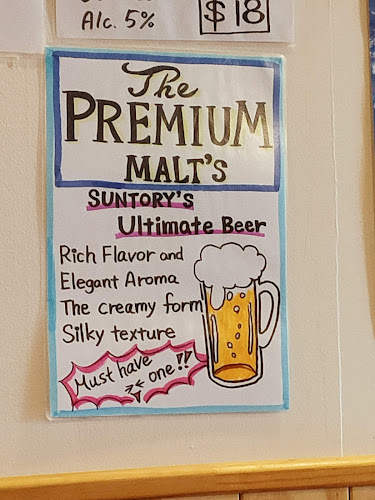 Alc. 5%
$18
The
PREMIUM
MALT'S
SUNTORY'S
Ultimate Beer
Rich Flavor and
Elegant Aroma
The creamy form
Silky texture
Must have
one!!